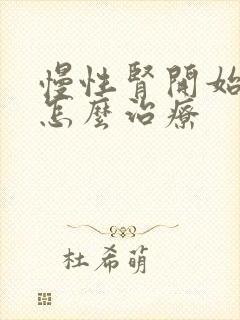 慢性腎開始
怎麼治療
杜希萌